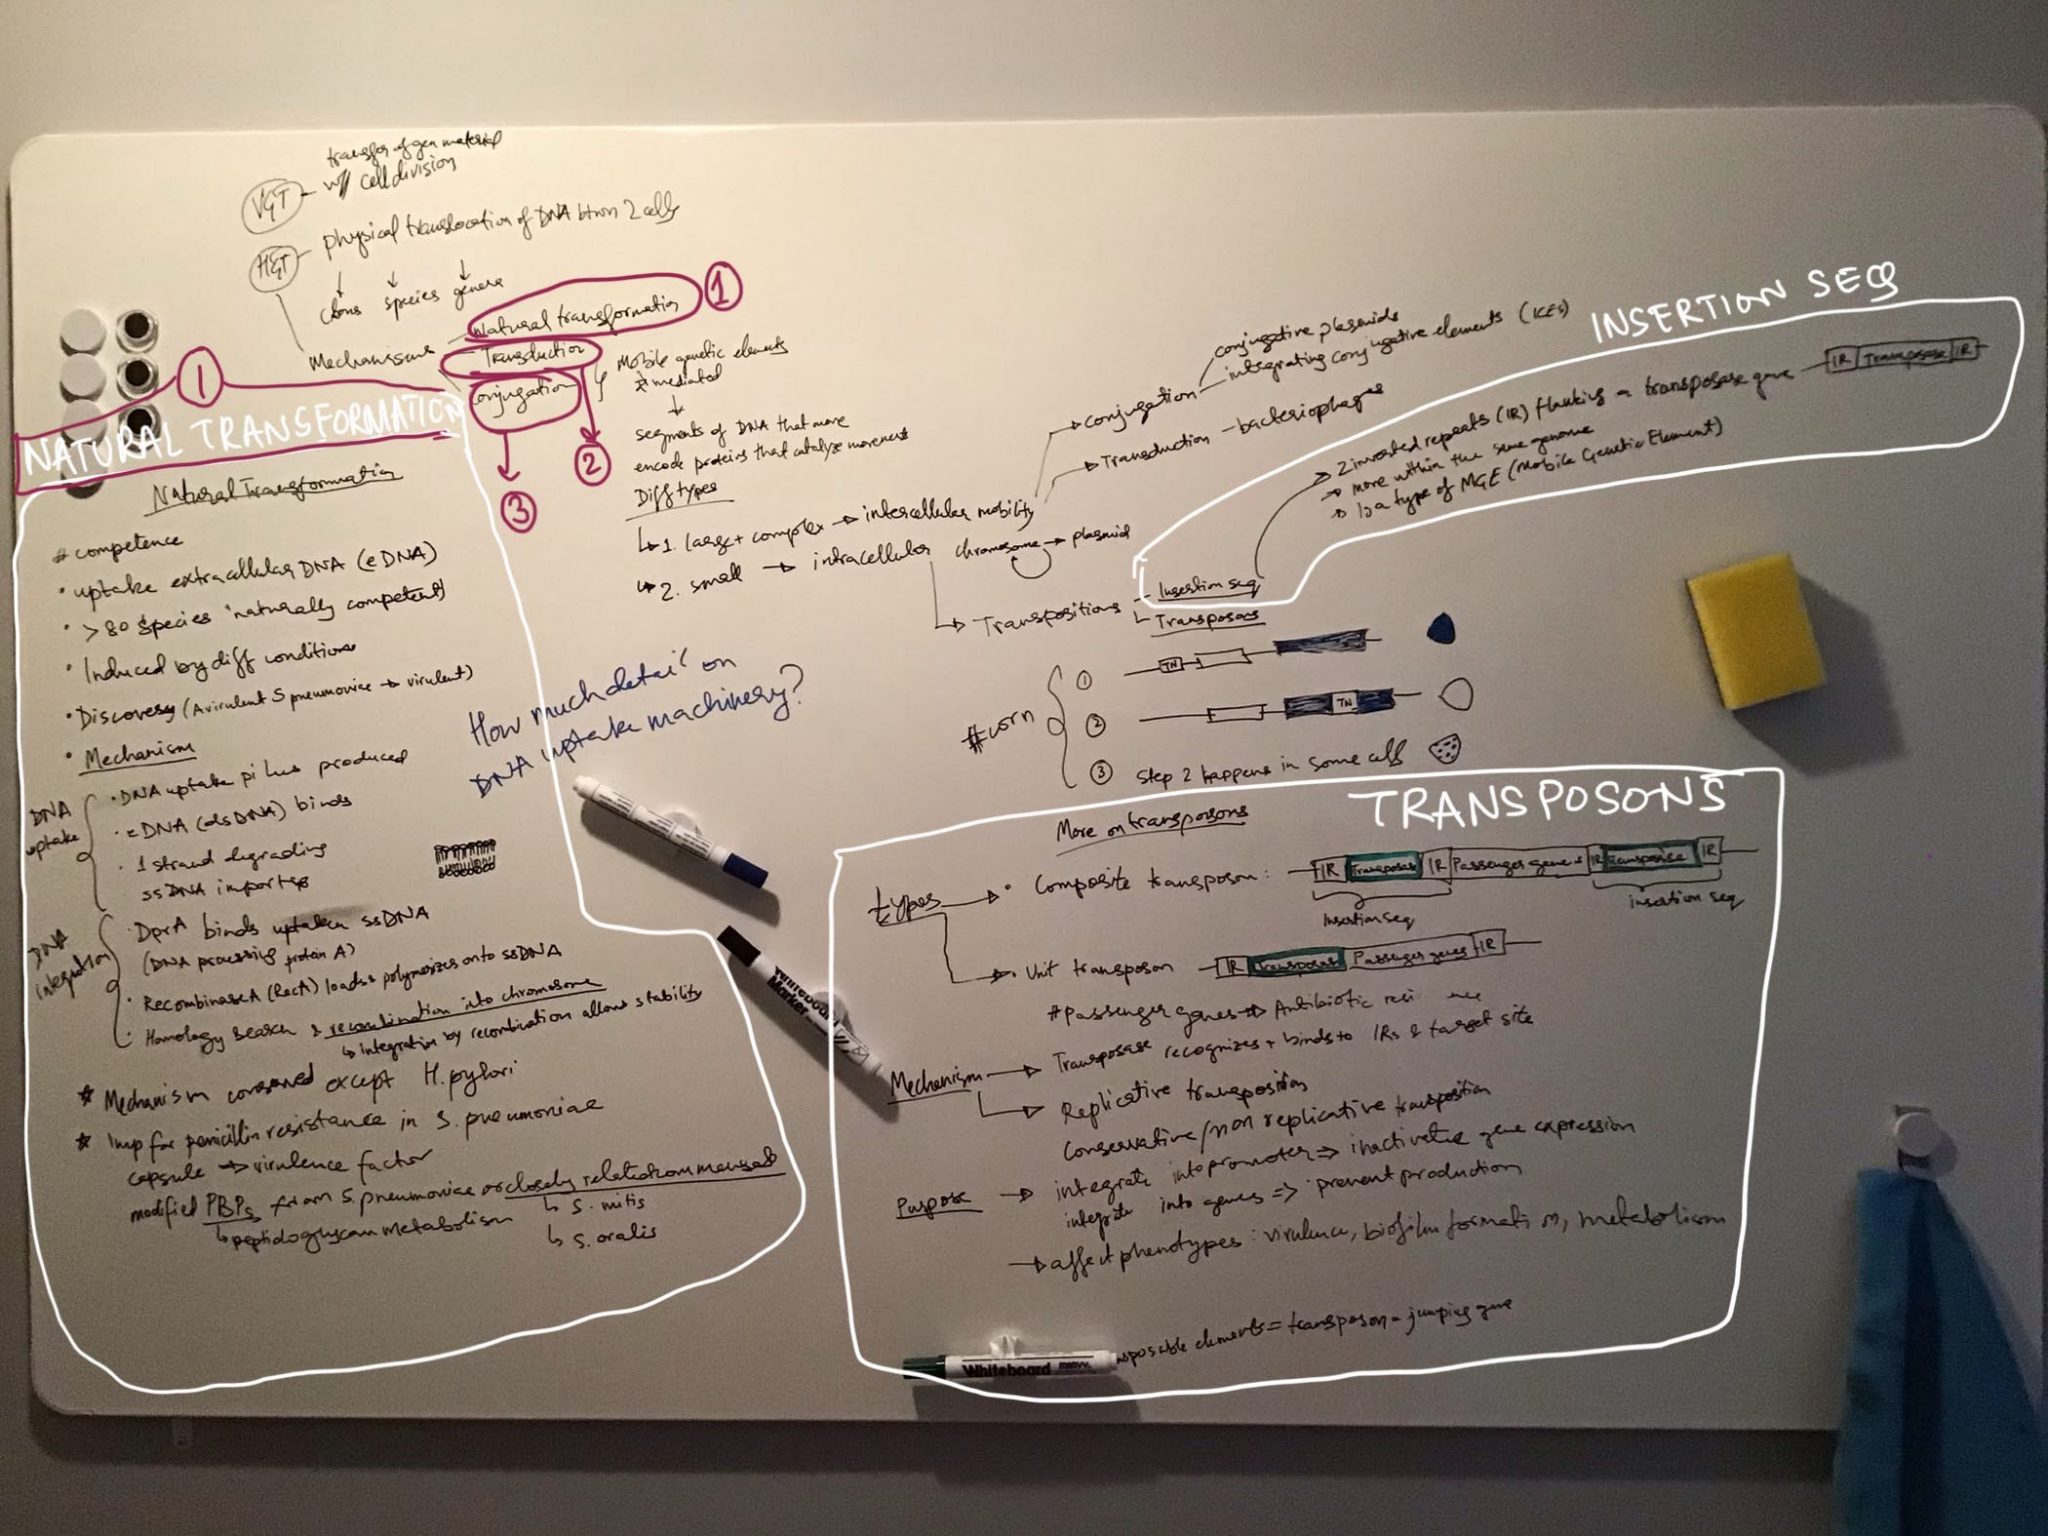 VGT
transfer of gen material
w/ cell division
HGT
physical translocation of DNA btwn 2 cells
clones species genera
Mechanisms
Natural transformation
Transduction
Conjugation
1
1
2
3
Mobile genetic elements
mediated
segments of DNA that move
encode proteins that catalyze movement
Diff types
1. large + complex → intercellular mobility
2. small → intracellular chromosome → plasmid
→ conjugation
conjugative plasmids
integrating conjugative elements (ICEs)
→ Transduction - bacteriophages
→ Transpositions
Insertion seq
Transposons
INSERTION SEQ
→ 2 inverted repeats (IR) flanking a transposase gene
IR Transposase IR
→ move within the same genome
→ Is a type of MGE (Mobile Genetic Element)
#corn
① TN
② TN
③ Step 2 happens in some cells
NATURAL TRANSFORMATION
Natural Transformation
# competence
• uptake extracellular DNA (eDNA)
• >80 species 'naturally competent'
• Induced by diff conditions
• Discovery (Avirulent S pneumoniae → virulent)
• Mechanism
DNA uptake
• DNA uptake pilus produced
• eDNA (dsDNA) binds
• 1 strand degrading
ssDNA imported
DNA integration
• DprA binds uptaken ssDNA
(DNA processing protein A)
• Recombinase A (RecA) loads & polymerizes onto ssDNA
• Homology search & recombination into chromosome
↳ Integration by recombination allows stability
* Mechanism conserved except H. pylori
* Imp for penicillin resistance in S. pneumoniae
capsule → virulence factor
modified PBPs from S. pneumoniae or closely related commensals
↳ peptidoglycan metabolism
↳ S. mitis
↳ S. oralis
How much detail on
DNA uptake machinery?
TRANSPOSONS
More on transposons
types → • Composite transposon:
IR Transposase IR Passenger genes IR Transposase IR
insertion seq
insertion seq
→ • Unit transposon
IR Transposase Passenger genes IR
# Passenger genes → Antibiotic
Mechanism → Transposase recognizes + binds to IRs & target site
→ Replicative transposition
Conservative/non replicative transposition
Purpose → integrate into promoter => inactivate gene expression
integrate into genes => prevent production
→ affect phenotypes: virulence, biofilm formation, metabolism
elements = transposon = jumping gene
Whiteboard
Marker
Whiteboard